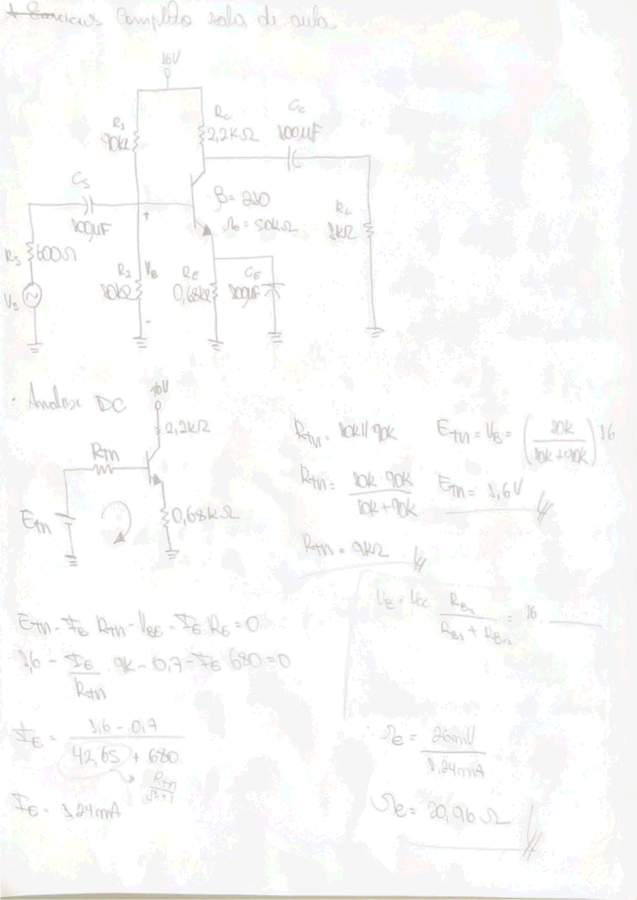 Completo sala de aula
16V
R1
90kΩ
Rc
2,2kΩ
Cc
100μF
Cs
100μF
β = 210
ro = 50kΩ
RL
1kΩ
Rs
600Ω
Vs
R2
10kΩ
VB
+
-
RE
0,68kΩ
CE
100μF
· Analise DC
16V
2,2kΩ
RTH
ETH
0,68kΩ
RTH = 10k//90k
RTH = 10k·90k / 10k+90k
RTH = 9kΩ
ETH = VB = (10k / 10k+90k) 16
ETH = 1,6V
= Vcc RB2 / RB1 + RB2 = 16
ETH - IB RTH - VBE - IE RE = 0
1,6 - IE / RTH · 9k - 0,7 - IE 680 = 0
IE = 1,6 - 0,7 / 42,65 + 680
RTH / β+1
IE = 1,24mA
re = 26mV / 1,24mA
re = 20,96 Ω